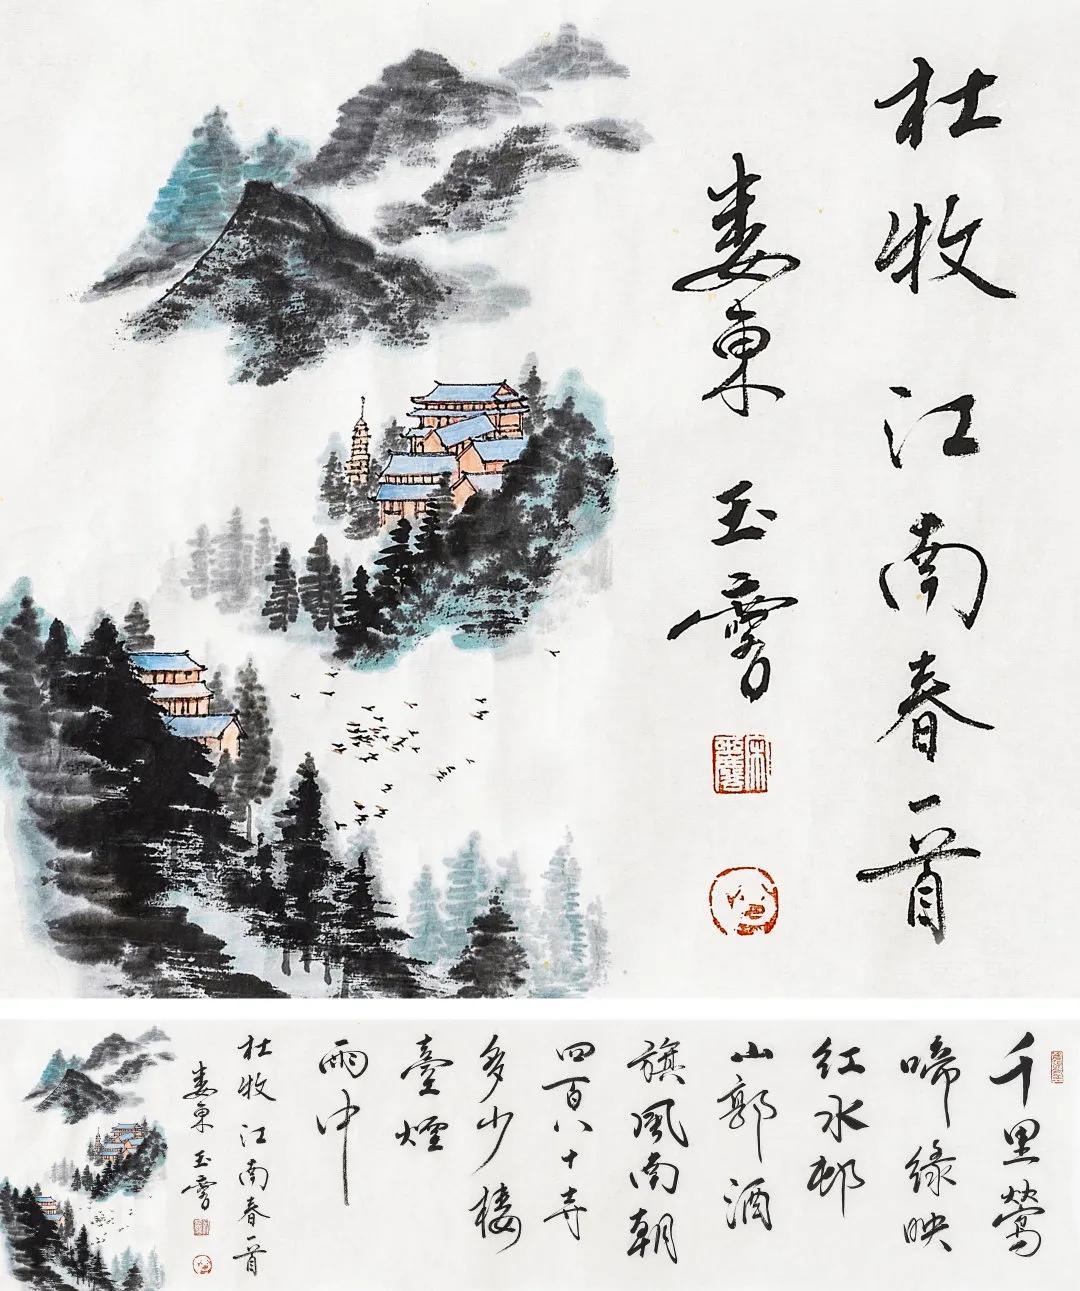 杜牧江南春一首
婁東玉麐
千里鶯
啼緑映
紅水邨
山郭酒
旗風南朝
四百八十寺
多少樓
臺煙
雨中
杜牧江南春一首
婁東玉麐